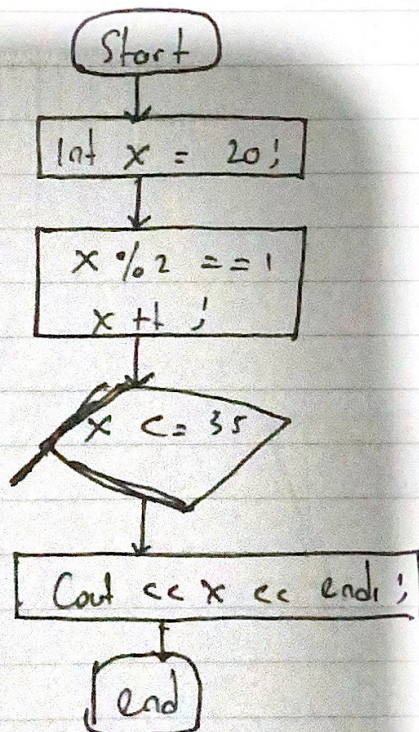 Start
Int x = 20;
x % 2 == 1
x ++ ;
x <= 35
Cout << x << endl ;
end